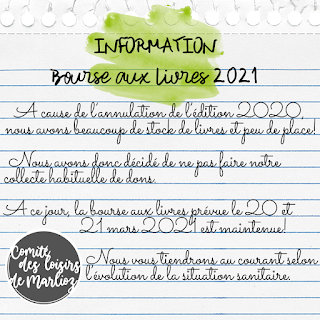 INFORMATION
Bourse aux livres 2021
A cause de l'annulation de l'édition 2020,
nous avons beaucoup de stock de livres et peu de place!
Nous avons donc décidé de ne pas faire notre
collecte habituelle de dons.
A ce jour, la bourse aux livres prévue le 20 et
21 mars 2021 est maintenue!
Nous vous tiendrons au courant selon
l'évolution de la situation sanitaire.
Comité
des loisirs
de Marlioz